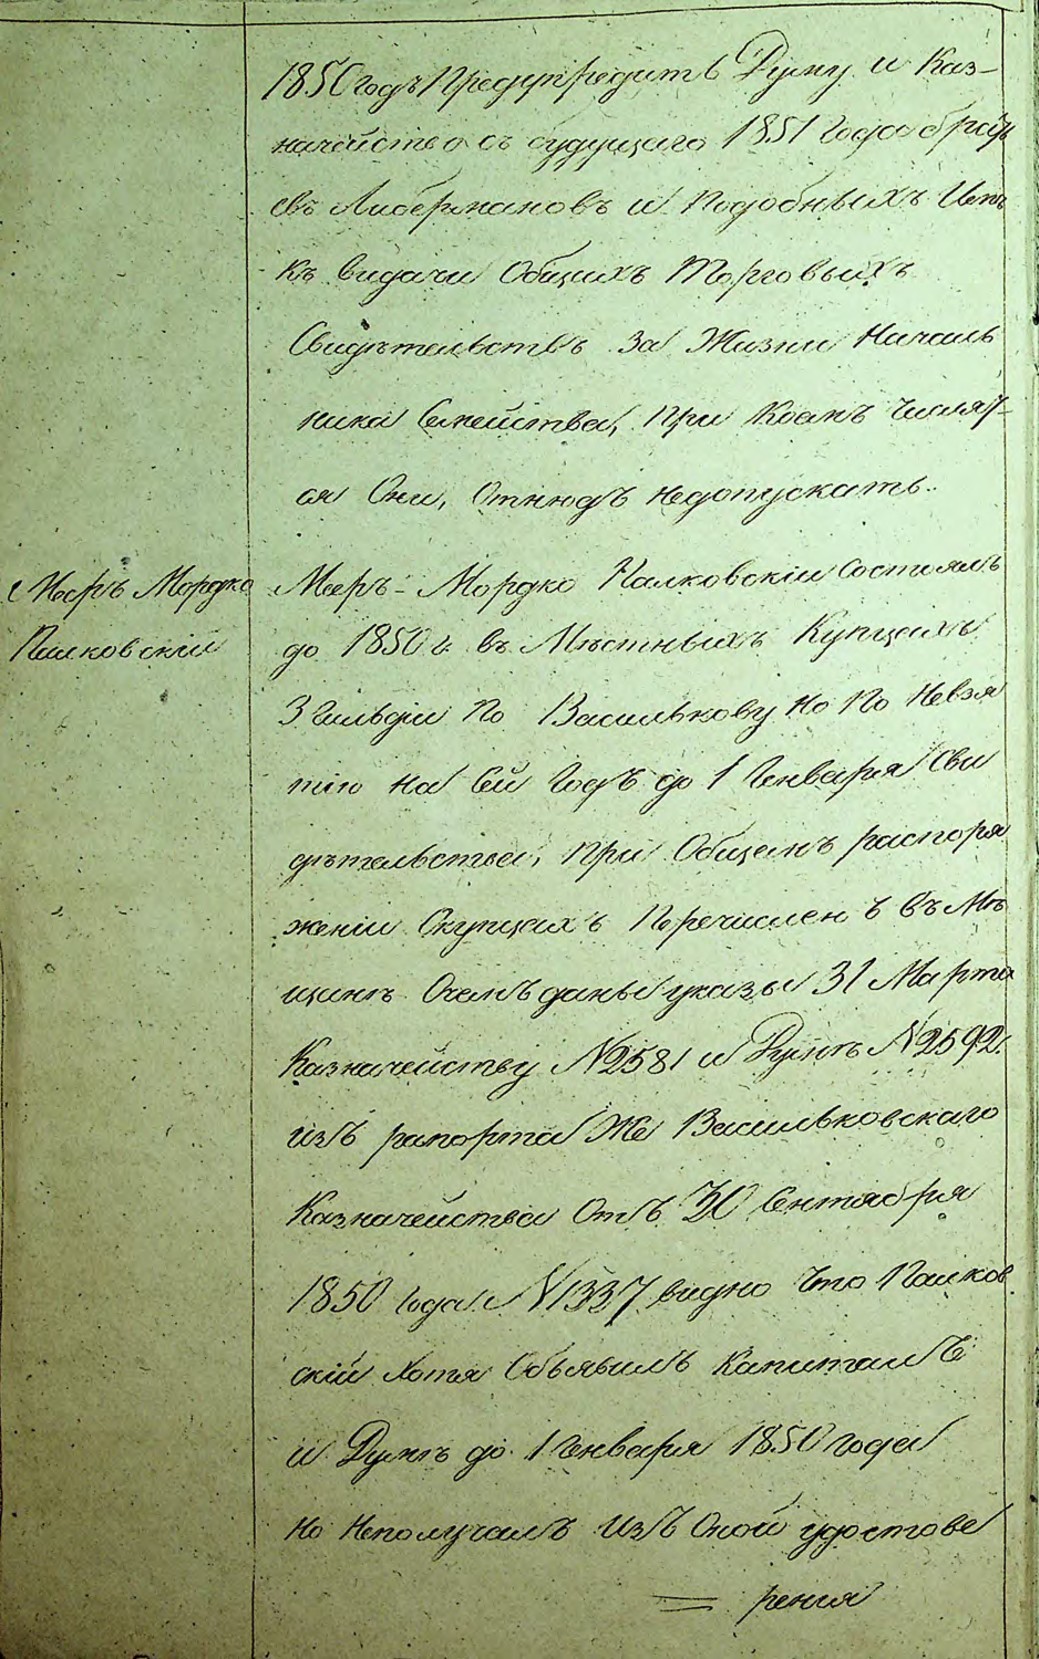 1850 годъ Предупредить Думу и Каз-
начейство съ будущаго 1851 года брать
евъ Либермановъ и Подобныхъ Имъ
къ видачи Общихъ Торговыхъ
Свидѣтельствъ За Жизни Началь
ника Семейства, При Коемъ Числят-
ся Они, Отнюдъ недопускать.
Меръ Мордко
Палковскій
Мееръ-Мордко Палковскій Состоялъ
до 1850 г. въ Мѣстныхъ Купцахъ
3 Гильдіи По Василькову Но По Невзя
тію на Сей Годъ до 1 Генваря Сви
дѣтельства, При Общемъ распоря
женіи Окупцахъ Перечисленъ въ Мѣ
щинъ Очемъ даны указы 31 Марта
Казначейству №2581 и Думъ №2592.
изъ рапорта Же Васильковскаго
Казначейства Отъ 30 Сентября
1850 года №1337 видно Что Палков
скій Хотя Объявилъ Капиталъ
и Думъ до 1 Генваря 1850 года
но Неполучалъ Изъ Оной удостове
= рения